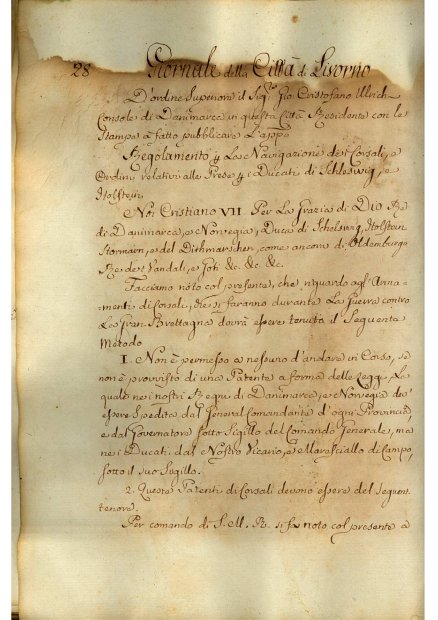 28 Giornale della Città di Livorno
D'ordine Superiore il Sig.re Gio Cristofano Ulrich
Console di Danimarca in questa Città Residente con le
Stampe à fatto pubblicare L'app.o
Regolamento p La Navigazione de i Corsali, e
Ordini relativi alle Prese p i Ducati di Schleswig, e
Holstein
Noi Cristiano VII. Per La Grazia di Dio Re
di Danimarca, e Norvegia, Duca di Schelswig, Holstein
Stormarn, e del Dithmarschen, come ancora di Oldemburgo
Re de i Vandali, e Goti &c. &c. &c.
Facciamo noto col presente, che riguardo agl'Arma-
menti di Corsale, che si faranno durante La Guerra contro
La Gran Brettagna dovrà essere tenuto il Seguente
Metodo
I. Non è permesso a nessuno d'andare in Corso, se
non è provvisto di una Patente a forma delle Leggi. La
quale nei nostri Regni di Danimarca, e Norvegia de'
essere Spedita dal General Comandante d'ogni Provincia
e dal Governatore sotto Sigillo del Comando Generale, ma
nei Ducati dal Nostro Vicario, e Maresciallo di Campo,
sotto il suo Sigillo.
2. Queste Patenti di Corsali devono essere del seguente
tenore.
Per comando di S. M. R. si fa noto col presente a